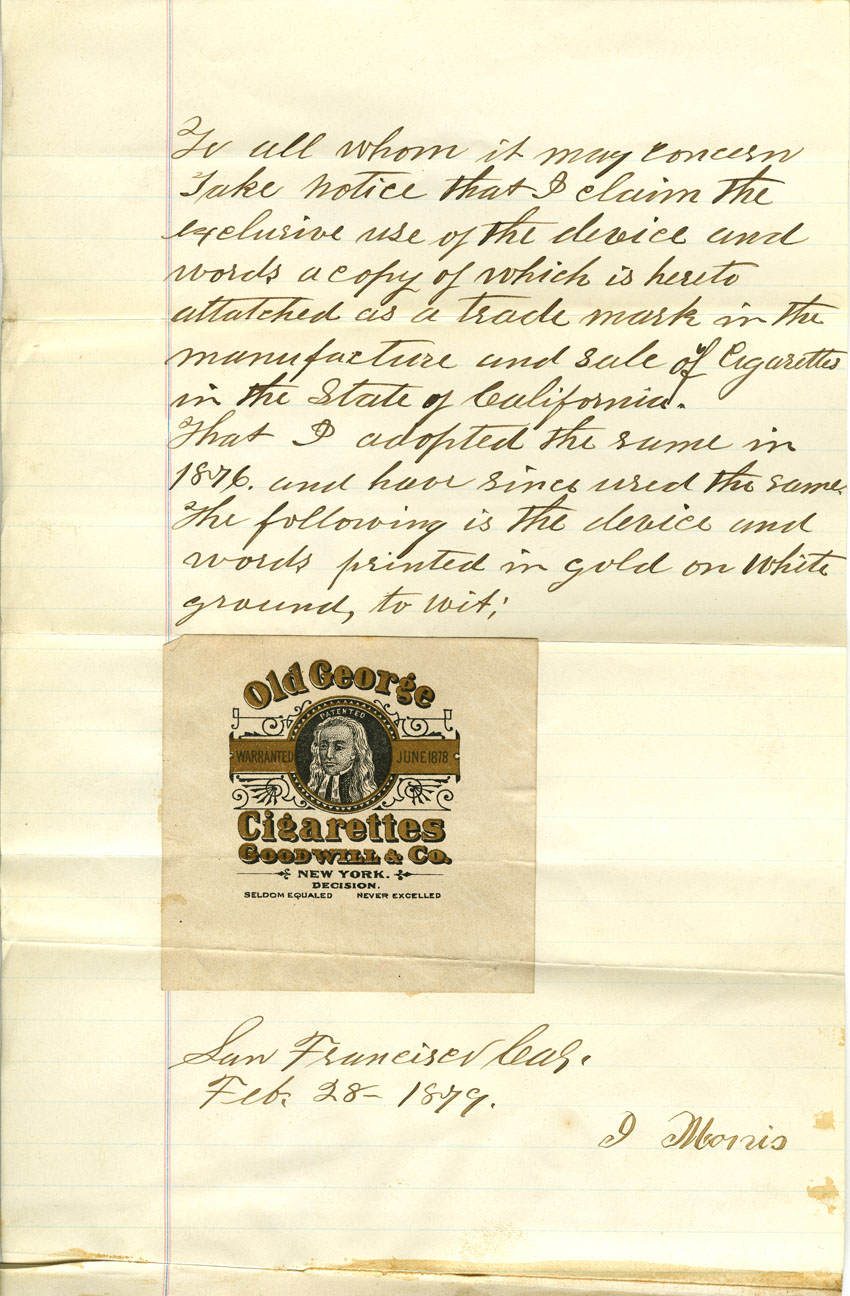 To all whom it may concern
Take Notice that I claim the
exclusive use of the device and
words a copy of which is hereto
attatched as a trade mark in the
manufacture and sale of Cigarettes
in the State of California.
That I adopted the same in
1876. and have since used the same.
The following is the device and
words printed in gold on White
ground, to wit;
Old George
PATENTED
WARRANTED JUNE 1878
Cigarettes
GOODWILL & CO.
NEW YORK.
DECISION.
SELDOM EQUALED NEVER EXCELLED
San Francisco Cal.
Feb. 28- 1879.
I Morris